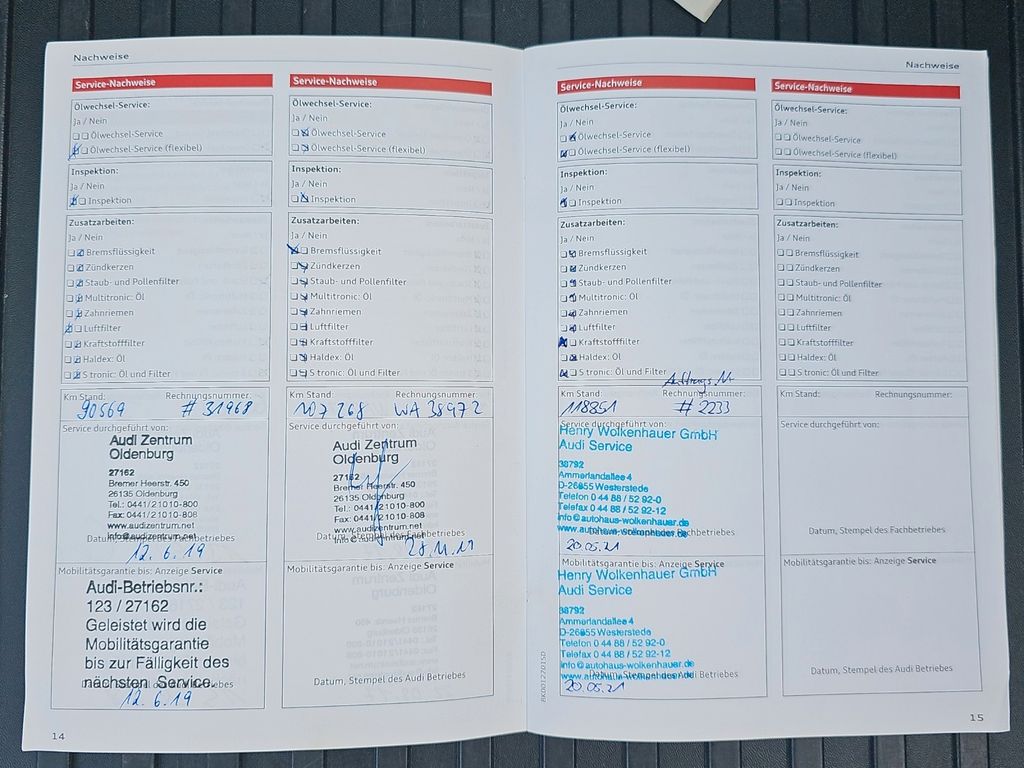 Nachweise
Service-Nachweise
Ölwechsel-Service:
Ja / Nein
Ölwechsel-Service
Ölwechsel-Service (flexibel)
Inspektion:
Ja / Nein
Inspektion
Zusatzarbeiten:
Ja / Nein
Bremsflüssigkeit
Zündkerzen
Staub- und Pollenfilter
Multitronic: Öl
Zahnriemen
Luftfilter
Kraftstofffilter
Haldex: Öl
S tronic: Öl und Filter
Km Stand: Rechnungsnummer:
90569 # 31968
Service durchgeführt von:
Audi Zentrum
Oldenburg
27162
Bremer Heerstr. 450
26135 Oldenburg
Tel.: 0441/21010-800
Fax: 0441/21010-808
www.audizentrum.net
info@audizentrum.net
Datum, Stempel des Fachbetriebes
12.6.19
Mobilitätsgarantie bis: Anzeige Service
Audi-Betriebsnr.:
123 / 27162
Geleistet wird die
Mobilitätsgarantie
bis zur Fälligkeit des
nächsten Service.
Datum, Stempel des Audi Betriebes
12.6.19
14
Service-Nachweise
Ölwechsel-Service:
Ja / Nein
Ölwechsel-Service
Ölwechsel-Service (flexibel)
Inspektion:
Ja / Nein
Inspektion
Zusatzarbeiten:
Ja / Nein
Bremsflüssigkeit
Zündkerzen
Staub- und Pollenfilter
Multitronic: Öl
Zahnriemen
Luftfilter
Kraftstofffilter
Haldex: Öl
S tronic: Öl und Filter
Km Stand: Rechnungsnummer:
107 268 WA 38972
Service durchgeführt von:
Audi Zentrum
Oldenburg
27162
Bremer Heerstr. 450
26135 Oldenburg
Tel.: 0441/21010-800
Fax: 0441/21010-808
www.audizentrum.net
info@audizentrum.net
Datum, Stempel des Fachbetriebes
Mobilitätsgarantie bis: Anzeige Service
Datum, Stempel des Audi Betriebes
Nachweise
Service-Nachweise
Ölwechsel-Service:
Ja / Nein
Ölwechsel-Service
Ölwechsel-Service (flexibel)
Inspektion:
Ja / Nein
Inspektion
Zusatzarbeiten:
Ja / Nein
Bremsflüssigkeit
Zündkerzen
Staub- und Pollenfilter
Multitronic: Öl
Zahnriemen
Luftfilter
Kraftstofffilter
Haldex: Öl
S tronic: Öl und Filter
Auftrags Nr
Km Stand: Rechnungsnummer:
118851 # 2233
Service durchgeführt von:
Henry Wolkenhauer GmbH
Audi Service
38792
Ammerlandallee 4
D-26655 Westerstede
Telefon 0 44 88 / 52 92-0
Telefax 0 44 88 / 52 92-12
info@autohaus-wolkenhauer.de
www.autohaus-wolkenhauer.de
Datum, Stempel des Fachbetriebes
20.05.21
Mobilitätsgarantie bis: Anzeige Service
Henry Wolkenhauer GmbH
Audi Service
38792
Ammerlandallee 4
D-26655 Westerstede
Telefon 0 44 88 / 52 92-0
Telefax 0 44 88 / 52 92-12
info@autohaus-wolkenhauer.de
www.autohaus-wolkenhauer.de
Datum, Stempel des Audi Betriebes
20.05.21
Service-Nachweise
Ölwechsel-Service:
Ja / Nein
Ölwechsel-Service
Ölwechsel-Service (flexibel)
Inspektion:
Ja / Nein
Inspektion
Zusatzarbeiten:
Ja / Nein
Bremsflüssigkeit
Zündkerzen
Staub- und Pollenfilter
Multitronic: Öl
Zahnriemen
Luftfilter
Kraftstofffilter
Haldex: Öl
S tronic: Öl und Filter
Km Stand: Rechnungsnummer:
Service durchgeführt von:
Datum, Stempel des Fachbetriebes
Mobilitätsgarantie bis: Anzeige Service
Datum, Stempel des Audi Betriebes
15